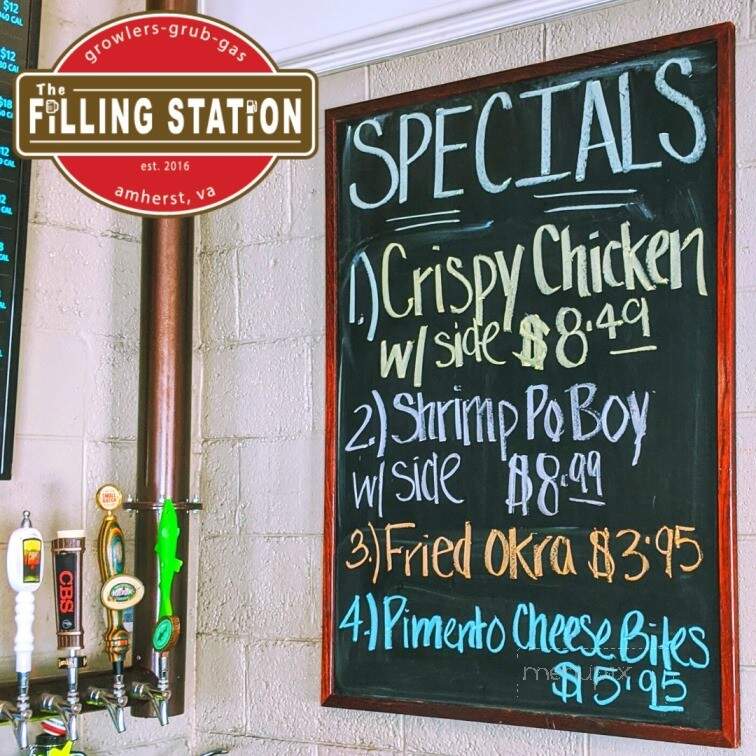 growlers-grub-gas
The
FILLING STATION
est. 2016
amherst, va
SPECIALS
1.) Crispy Chicken
w/ side $8.49
2.) Shrimp Po Boy
w/ side $8.99
3.) Fried Okra $3.95
4.) Pimento Cheese Bites
$5.95
menupix
CBS
$12
$12
$18